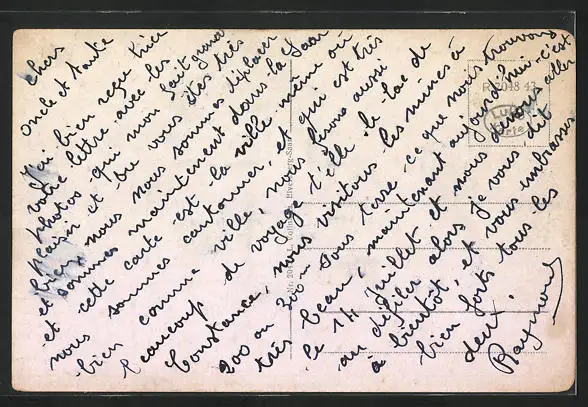 Chers
oncle et tante
J'ai bien reçu hier
votre lettre avec les
photos qui m'on fait grand
plaisir et bu vous êtes très
bien, nous nous sommes déplacer
et sommes maintenant dans la Saar
et cette carte est la ville même où
nous sommes cantonner, et qui est très
bien comme ville, nous ferons aussi
beaucoup de voyage telle le lac de
Constance, nous visitons les mines à
200 ou 300 m sous terre ce que nous trouvons
très beau, maintenant aujourd'hui c'est
le 14 Juillet et nous devons aller
au défiler alors je vous dit
à bientôt, et vous embrasse
bien forts tous les
deux.
Raymond
R 2048 43